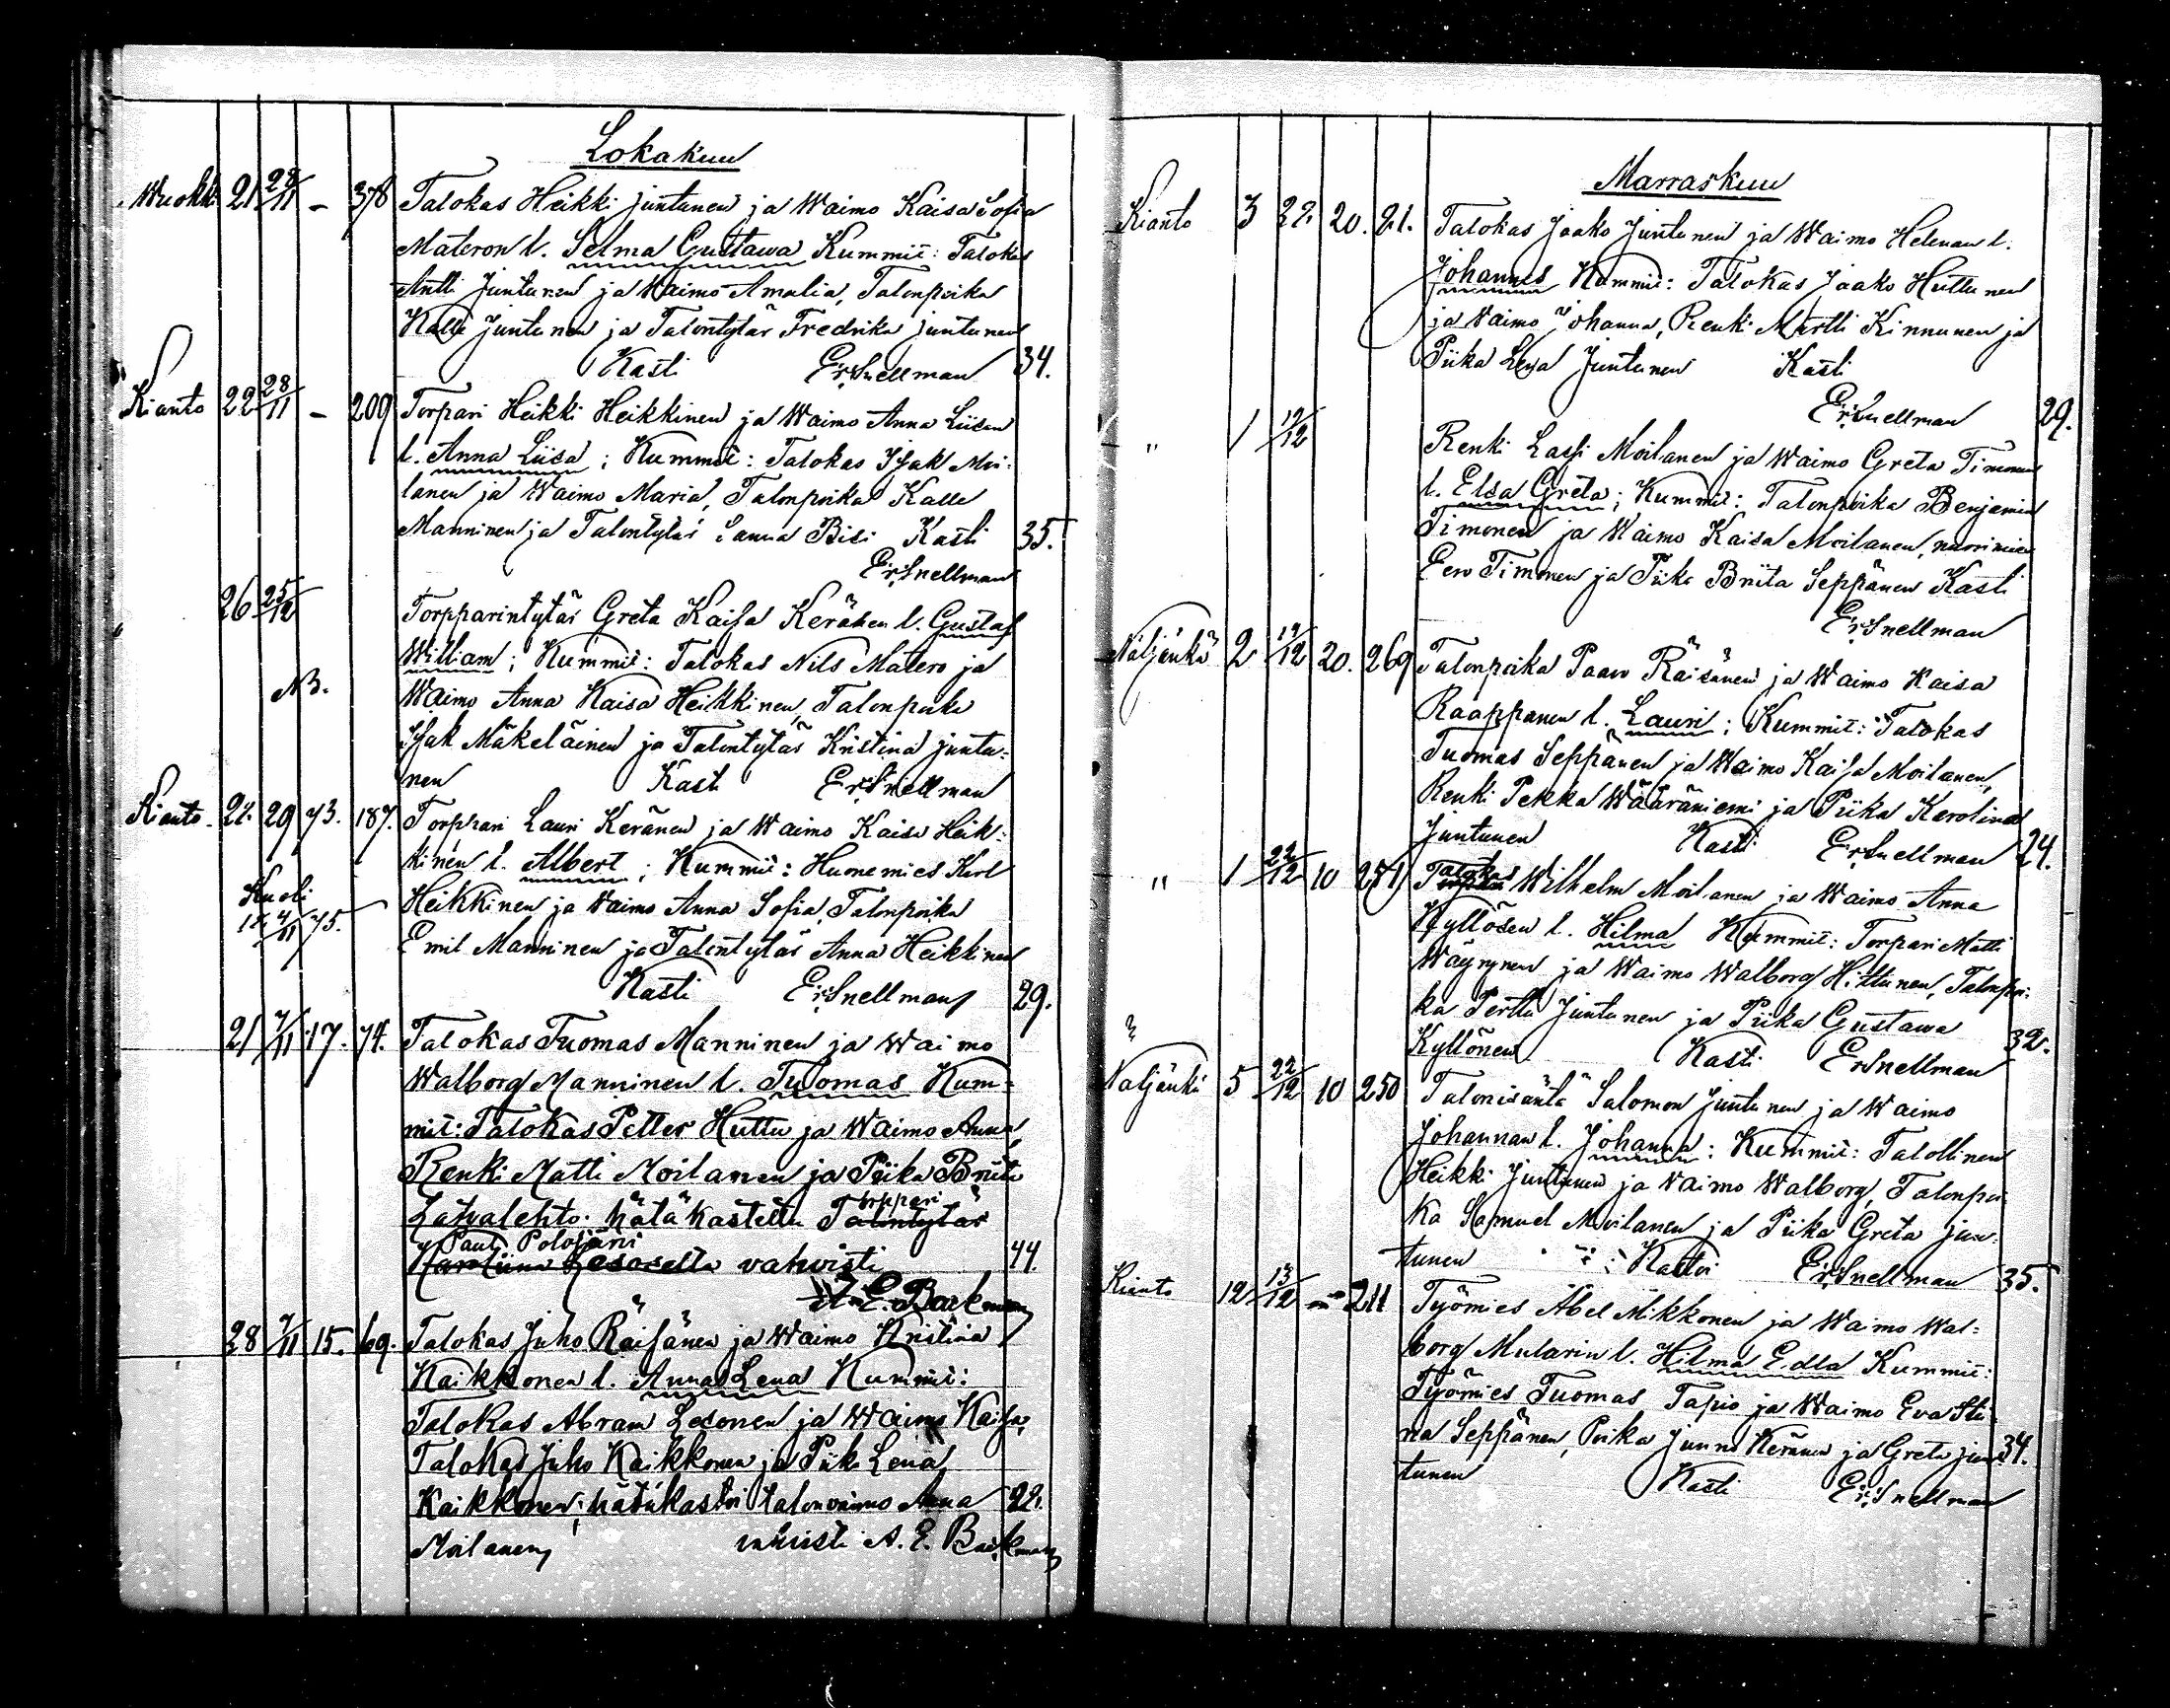 Lokakuu
Wuokki 21 28/11 - 378 Talokas Heikki Juntunen ja Waimo Kaisa Sofia
Materon l. Selma Gustawa Kummit: Talokas
Antti Juntunen ja Waimo Amalia, Talonpoika
Kalle Juntunen ja Talontytär Fredrika Juntunen
Kasti Er. Snellman 34.
Kianto 22 28/11 - 209 Torpari Heikki Heikkinen ja Waimo Anna Liisan
l. Anna Liisa; Kummit: Talokas Isak Moi-
lanen ja Waimo Maria, Talonpoika Kalle
Manninen ja Talontytär Sanna Bisi Kasti 35.
Er. Snellman
26 25/12 Torpparintytär Greta Kaisa Keräsen l. Gustaf
William; Kummit: Talokas Nils Matero ja
NB. Waimo Anna Kaisa Heikkinen, Talonpoika
Isak Mäkeläinen ja Talontytär Kristina Juntu-
nen Kasti Er. Snellman
Kianto 29 73. 187. Torppari Lauri Keränen ja Waimo Kaisa Heik-
kinen l. Albert; Kummit: Huonemies Karl
Kuoli
Heikkinen ja Waimo Anna Sofia, Talonpoika
11 75.
Emil Manninen ja Talontytär Anna Heikkinen
Kasti Er. Snellman 29.
21 7/11 17. 74. Talokas Tuomas Manninen ja Waimo
Walborg Manninen l. Tuomas Kum-
mit: Talokas Petter Huttu ja Waimo Anna,
Renki Matti Moilanen ja Piika Briita
Latvalehto. hätäkastettu Talontytär
Torppari
Paul Polojärvi
Karoliina vahvisti 44.
A. E. Backman
28 7/11 15. 69. Talokas Juho Räisänen ja Waimo Kristina
Kaikkonen l. Anna Lena Kummit:
Talokas Abram Lesonen ja Waimo Kaisa,
Talokas Juho Kaikkonen ja Piika Lena
Kaikkonen; hätäkastoi talonvaimo Anna 22.
Moilanen, vahvisti A. E. Backman
Marraskuu
Kianto 3 20. 21. Talokas Jaako Juntunen ja Waimo Helenan l.
Johannes Kummit: Talokas Jaako Huttunen
ja Waimo Johanna, Renki Martti Kinnunen ja
Piika Leya Juntunen Kasti
Er. Snellman 29.
" 1 19/12 Renki Lassi Moilanen ja Waimo Greta Timonen
l. Elsa Greta; Kummit: Talonpoika Benjamin
Timonen ja Waimo Kaisa Moilanen, nuorimies
Eero Timonen ja Piika Briita Seppänen Kasti
Er. Snellman
Näljänkä 2 19/12 20. 269 Talonpoika Paavo Räisänen ja Waimo Kaisa
Raappanen l. Lauri; Kummit: Talokas
Tuomas Seppänen ja Waimo Kaisa Moilanen,
Renki Pekka Wääräniemi ja Piika Karolina
Juntunen Kasti Er. Snellman 24.
" 1 22/12 10 251 Talokas Wilhelm Moilanen ja Waimo Anna
Kyllösen l. Hilma Kummit: Torpari Matti
Wäyrynen ja Waimo Walborg Hiltunen, Talonpoi-
ka Pertti Juntunen ja Piika Gustawa
Kyllönen Kasti Er. Snellman 32.
Näljänkä 5 22/12 10 250 Talonisäntä Salomon Juntunen ja Waimo
Johannan l. Johanna: Kummit: Talollinen
Heikki Juntunen ja Waimo Walborg, Talonpoi-
ka Samuel Moilanen ja Piika Greta Jun-
tunen Kastoi Er. Snellman 35.
Kianto 12 13/12 - 211 Työmies Abel Mikkonen ja Waimo Wal-
borg Mularin l. Hilma Edla Kummit:
Työmies Tuomas Tapio ja Waimo Eva Sti-
na Seppänen, Poika Junno Keränen ja Greta Jun- 34.
tunen Kasti Er. Snellman